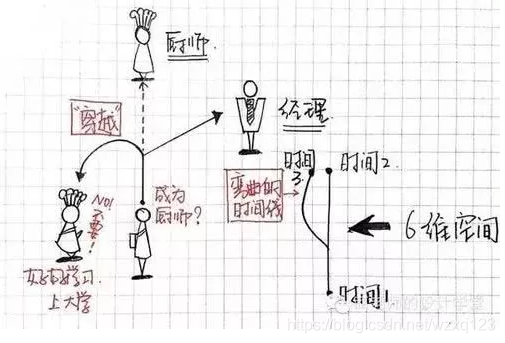 厨师.
"穿越"
经理
时间3.
时间2.
弯曲的
时间线
NO!
不要!
成为
厨师?
6维空间
好好学习
上大学
时间1
https://blog.csdn.net/wzxq123